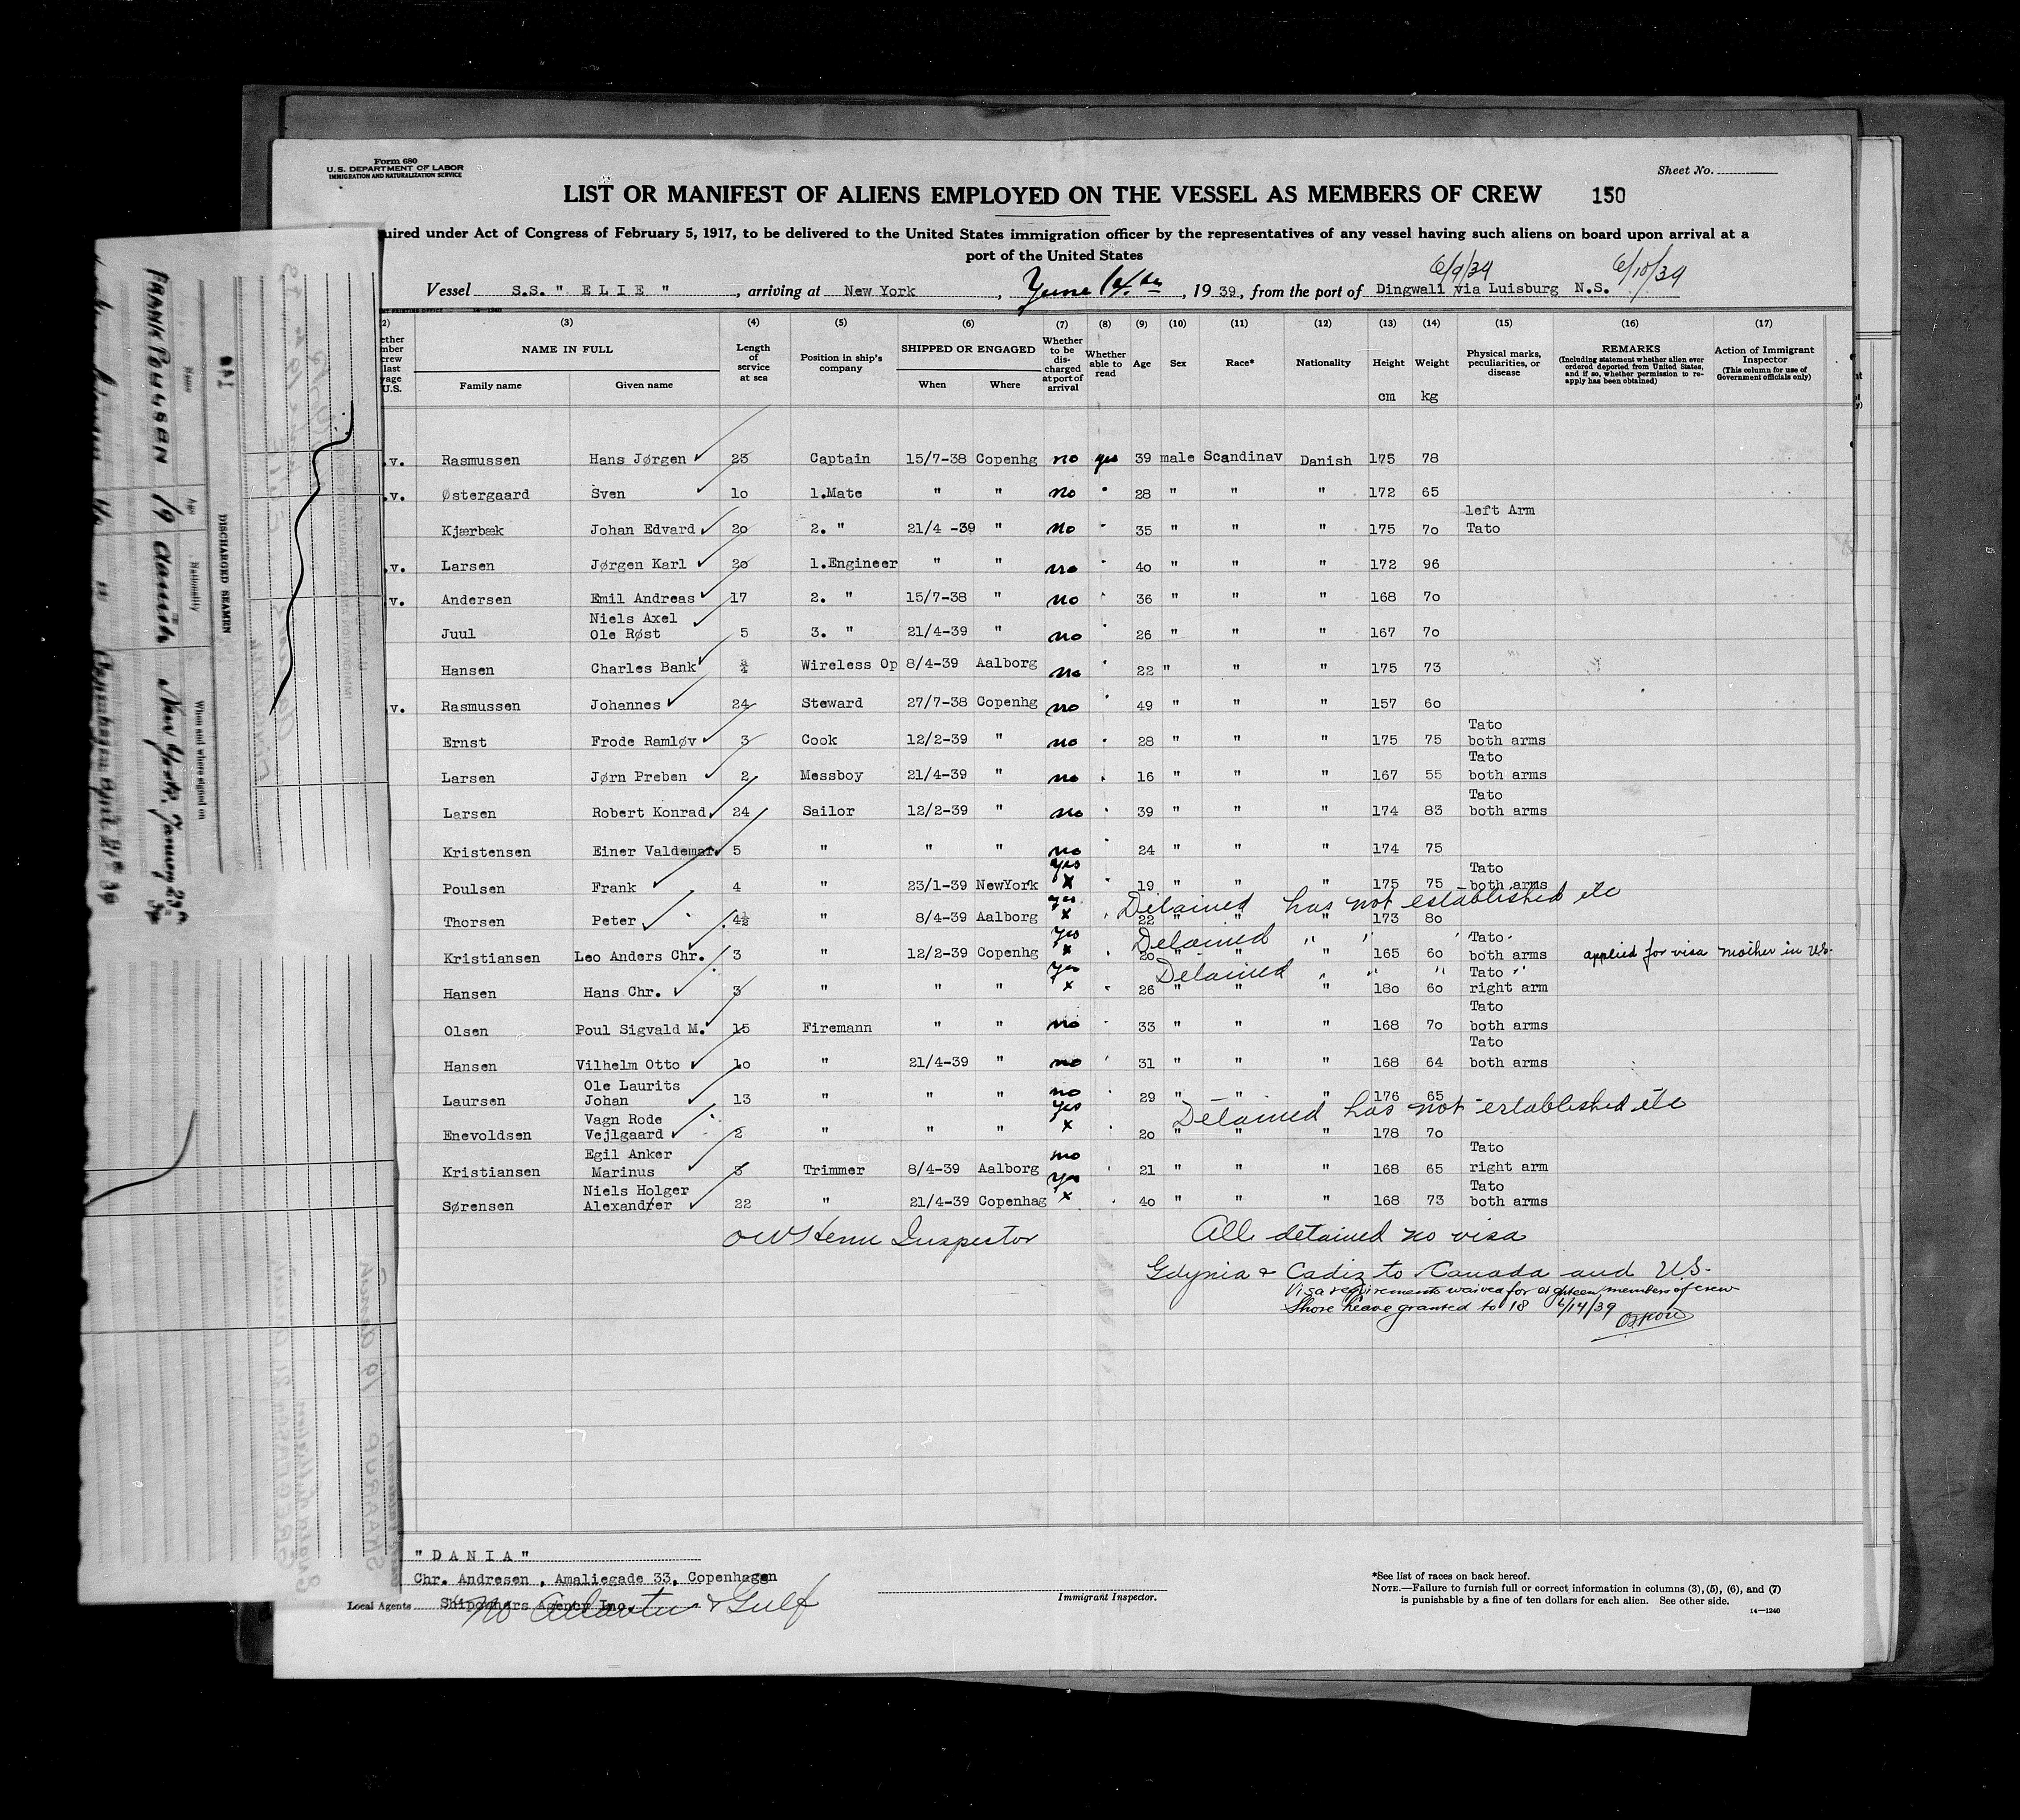 Form 680
U.S. DEPARTMENT OF LABOR
IMMIGRATION AND NATURALIZATION SERVICE
Sheet No.
LIST OR MANIFEST OF ALIENS EMPLOYED ON THE VESSEL AS MEMBERS OF CREW 150
uired under Act of Congress of February 5, 1917, to be delivered to the United States immigration officer by the representatives of any vessel having such aliens on board upon arrival at a
port of the United States
6/9/39 6/10/39
Vessel S.S. " E L I E " , arriving at New York , June 14th , 19 39 , from the port of Dingwall via Luisburg N.S.
(2) (3) (4) (5) (6) (7) (8) (9) (10) (11) (12) (13) (14) (15) (16) (17)
NAME IN FULL Family name Given name Length of service at sea Position in ship's company SHIPPED OR ENGAGED When Where Whether to be discharged at port of arrival Whether able to read Age Sex Race* Nationality Height cm Weight kg Physical marks, peculiarities, or disease REMARKS (Including statement whether alien ever ordered deported from United States, and if so, whether permission to reapply has been obtained) Action of Immigrant Inspector (This column for use of Government officials only)
.v. Rasmussen Hans Jørgen 23 Captain 15/7-38 Copenhg no yes 39 male Scandinav Danish 175 78
.v. Østergaard Sven 10 1.Mate " " no " 28 " " " 172 65
Kjærbæk Johan Edvard 20 2. " 21/4 -39 " no " 35 " " " 175 70 left Arm Tato
.v. Larsen Jørgen Karl 20 1.Engineer " " no " 40 " " " 172 96
v. Andersen Emil Andreas 17 2. " 15/7-38 " no " 36 " " " 168 70
Juul Niels Axel Ole Røst 5 3. " 21/4-39 " no " 26 " " " 167 70
Hansen Charles Bank ¾ Wireless Op 8/4-39 Aalborg no " 22 " " " 175 73
v. Rasmussen Johannes 24 Steward 27/7-38 Copenhg no " 49 " " " 157 60
Ernst Frode Ramløv 3 Cook 12/2-39 " no " 28 " " " 175 75 Tato both arms
Larsen Jørn Preben 2 Messboy 21/4-39 " no " 16 " " " 167 55 Tato both arms
Larsen Robert Konrad 24 Sailor 12/2-39 " no " 39 " " " 174 83 Tato both arms
Kristensen Einer Valdemar 5 " " " no " 24 " " " 174 75
Poulsen Frank 4 " 23/1-39 NewYork yes x " 19 " " " 175 75 Tato both arms
Detained has not established etc
Thorsen Peter 4½ " 8/4-39 Aalborg yes x " 22 " " " 173 80
Detained " "
Kristiansen Leo Anders Chr. 3 " 12/2-39 Copenhg yes x " 20 " " " 165 60 Tato both arms applied for visa mother in US.
Detained " " "
Hansen Hans Chr. 3 " " " yes x " 26 " " " 180 60 Tato right arm
Olsen Poul Sigvald M. 15 Firemann " " no " 33 " " " 168 70 Tato both arms
Hansen Vilhelm Otto 10 " 21/4-39 " no " 31 " " " 168 64 Tato both arms
Laursen Ole Laurits Johan 13 " " " no " 29 " " " 176 65
Detained has not established etc
Enevoldsen Vagn Rode Vejlgaard 2 " " " yes x " 20 " " " 178 70
Kristiansen Egil Anker Marinus 3 Trimmer 8/4-39 Aalborg no " 21 " " " 168 65 Tato right arm
Sørensen Niels Holger Alexander 22 " 21/4-39 Copenhag yes x " 40 " " " 168 73 Tato both arms
Inspector All detained no visa
Gdynia & Cadiz to Canada and U.S.
Visa requirements waived for eighteen members of crew
Shore leave granted to 18 6/14/39
" D A N I A "
Chr. Andresen , Amaliegade 33, Copenhagen
Local Agents Shipowners Agency Inc.
No Atlantic & Gulf
Immigrant Inspector.
*See list of races on back hereof.
NOTE.—Failure to furnish full or correct information in columns (3), (5), (6), and (7)
is punishable by a fine of ten dollars for each alien. See other side.
14—1240
DISCHARGED SEAMEN
Name Age Nationality When and where signed on
FRANK POULSEN 19 danish New York, January 23rd